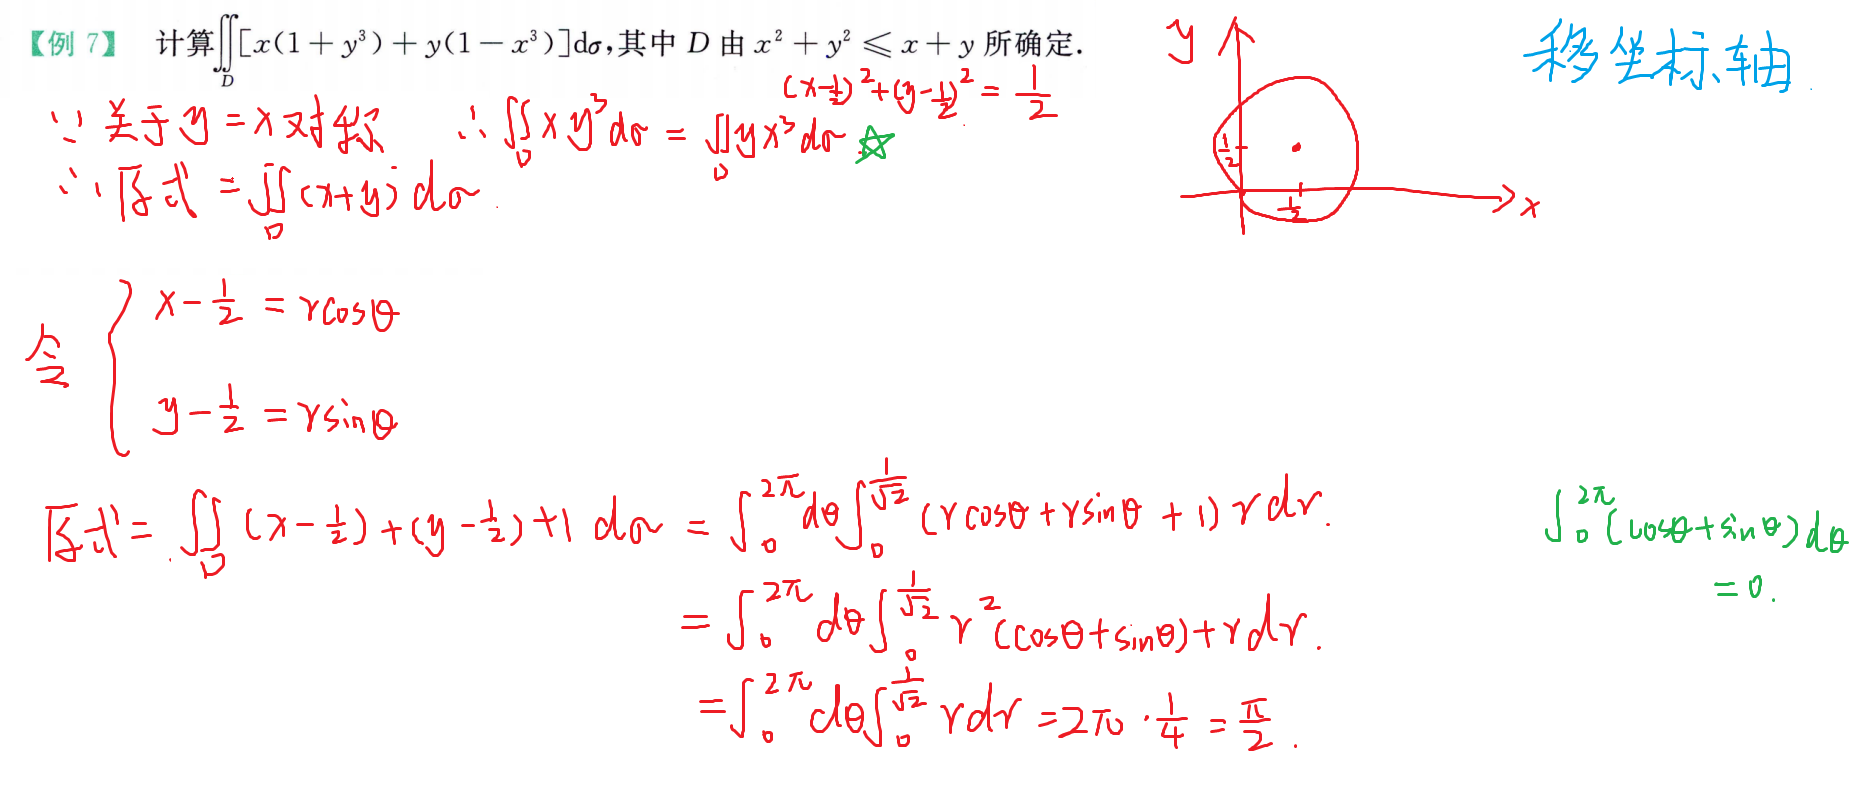 【例 7】 计算∬_D[x(1+y³)+y(1−x³)]dσ,其中 D 由 x²+y²⩽x+y 所确定.
移坐标轴
(x-1/2)²+(y-1/2)²=1/2
∵ 关于y=x对称 ∴ ∬_D xy³dσ = ∬_D yx³dσ ☆
∴ 原式 = ∬_D (x+y) dσ.
y
1/2
1/2
x
令 { x-1/2 = rcosθ
y-1/2 = rsinθ
原式 = ∬_D (x-1/2)+(y-1/2)+1 dσ = ∫_0^{2π} dθ ∫_0^{1/√2} (rcosθ+rsinθ+1) r dr.
= ∫_0^{2π} dθ ∫_0^{1/√2} r²(cosθ+sinθ)+r dr.
= ∫_0^{2π} dθ ∫_0^{1/√2} r dr = 2π · 1/4 = π/2.
∫_0^{2π} (cosθ+sinθ)dθ
= 0.